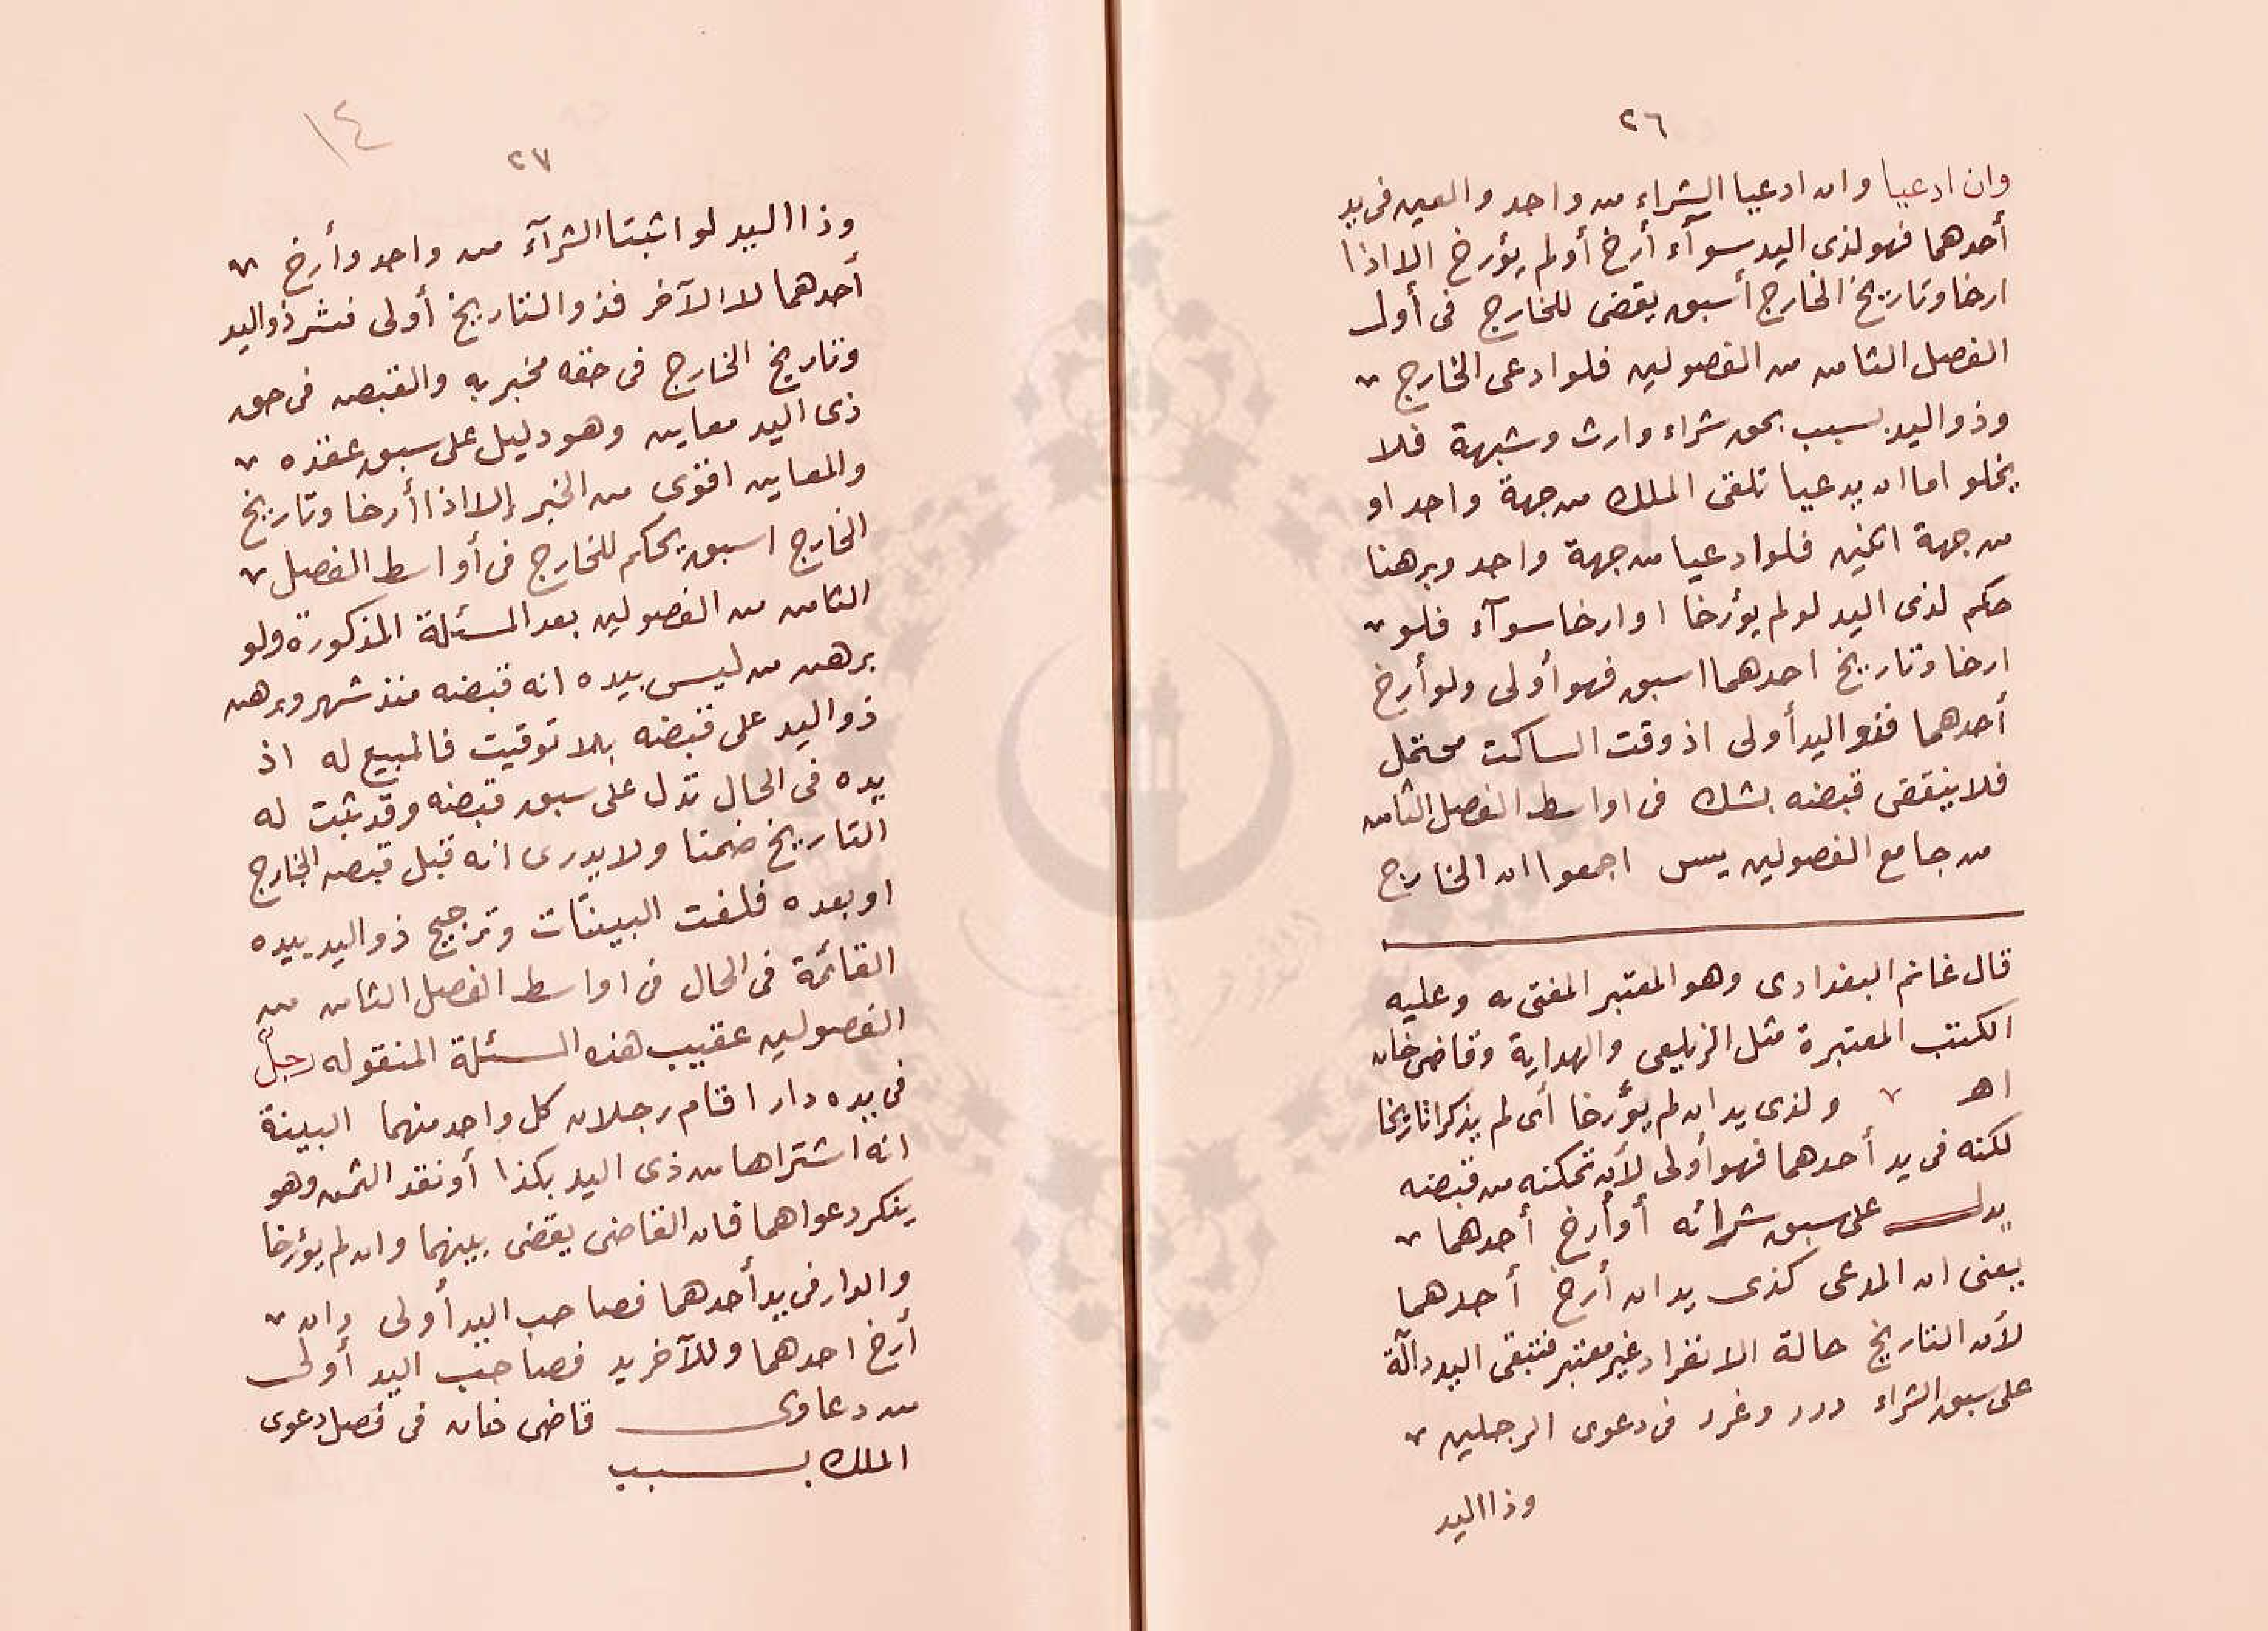 ٢٦
وان ادعيا وان ادعيا الشراء من واحد والعين فى يد
أحدهما فهو لذى اليد سوآء أرخ أو لم يؤرخ الا اذا
ارخا وتاريخ الخارج أسبق يقضى للخارج فى أول
الفصل الثامن من الفصولين فلو ادعى الخارج
وذو اليد بسبب بحق شراء وارث وشبهة فلا
يخلو اما ان يدعيا تلقى الملك من جهة واحد او
من جهة اثنين فلو ادعيا من جهة واحد وبرهنا
حكم لذى اليد لو لم يؤرخا او ارخا سوآء فلو
ارخا وتاريخ احدهما اسبق فهو أولى ولو أرخ
أحدهما فذو اليد أولى اذ وقت الساكت محتمل
فلا ينقض قبضه بشك فى اواسط الفصل الثامن
من جامع الفصولين يس اجمعوا ان الخارج
قال غانم البغدادى وهو المعتبر المفتى به وعليه
الكتب المعتبرة مثل الزيلعى والهداية وقاضى خان
اهـ ولذى يد ان لم يؤرخا أى لم يذكرا تاريخا
لكنه فى يد أحدهما فهو أولى لأن تمكنه من قبضه
يدل على سبق شرائه أو أرخ أحدهما
يعنى ان المدعى كذى يد ان أرخ أحدهما
لأن التاريخ حالة الانفراد غير معتبر فتبقى اليد دآلة
على سبق الشراء درر وغرر فى دعوى الرجلين
وذا اليد
١٤
٢٧
وذا اليد لو اثبتا الشرآء من واحد وأرخ
أحدهما لا الآخر فذو التاريخ أولى ذو اليد
وتاريخ الخارج فى حقه مخبر به والقبض فى حق
ذى اليد معاين وهو دليل على سبق عقده
والمعاين اقوى من الخبر إلا اذا أرخا وتاريخ
الخارج اسبق يحكم للخارج فى أواسط الفصل
الثامن من الفصولين بعد المسئلة المذكورة ولو
برهن من ليس بيده انه قبضه منذ شهر وبرهن
ذو اليد على قبضه بلا توقيت فالمبيع له اذ
يده فى الحال تدل على سبق قبضه وقد يثبت له
التاريخ ضمنا ولا يدرى انه قبل قبض الخارج
او بعده فلغت البينات وترجيح ذو اليد بيده
القائمة فى الحال فى اواسط الفصل الثامن من
الفصولين عقيب هذه المسئلة المنقوله رجل
فى يده دار اقام رجلان كل واحد منهما البينة
انه اشتراها من ذى اليد بكذا أو نقد الثمن وهو
ينكر دعواهما فان القاضى يقضى بينهما وان لم يؤرخا
والدار فى يد أحدهما فصاحب اليد أولى وان
أرخ احدهما وللآخر يد فصاحب اليد أولى
من دعاوى قاضى خان فى فصل دعوى
الملك بسبب